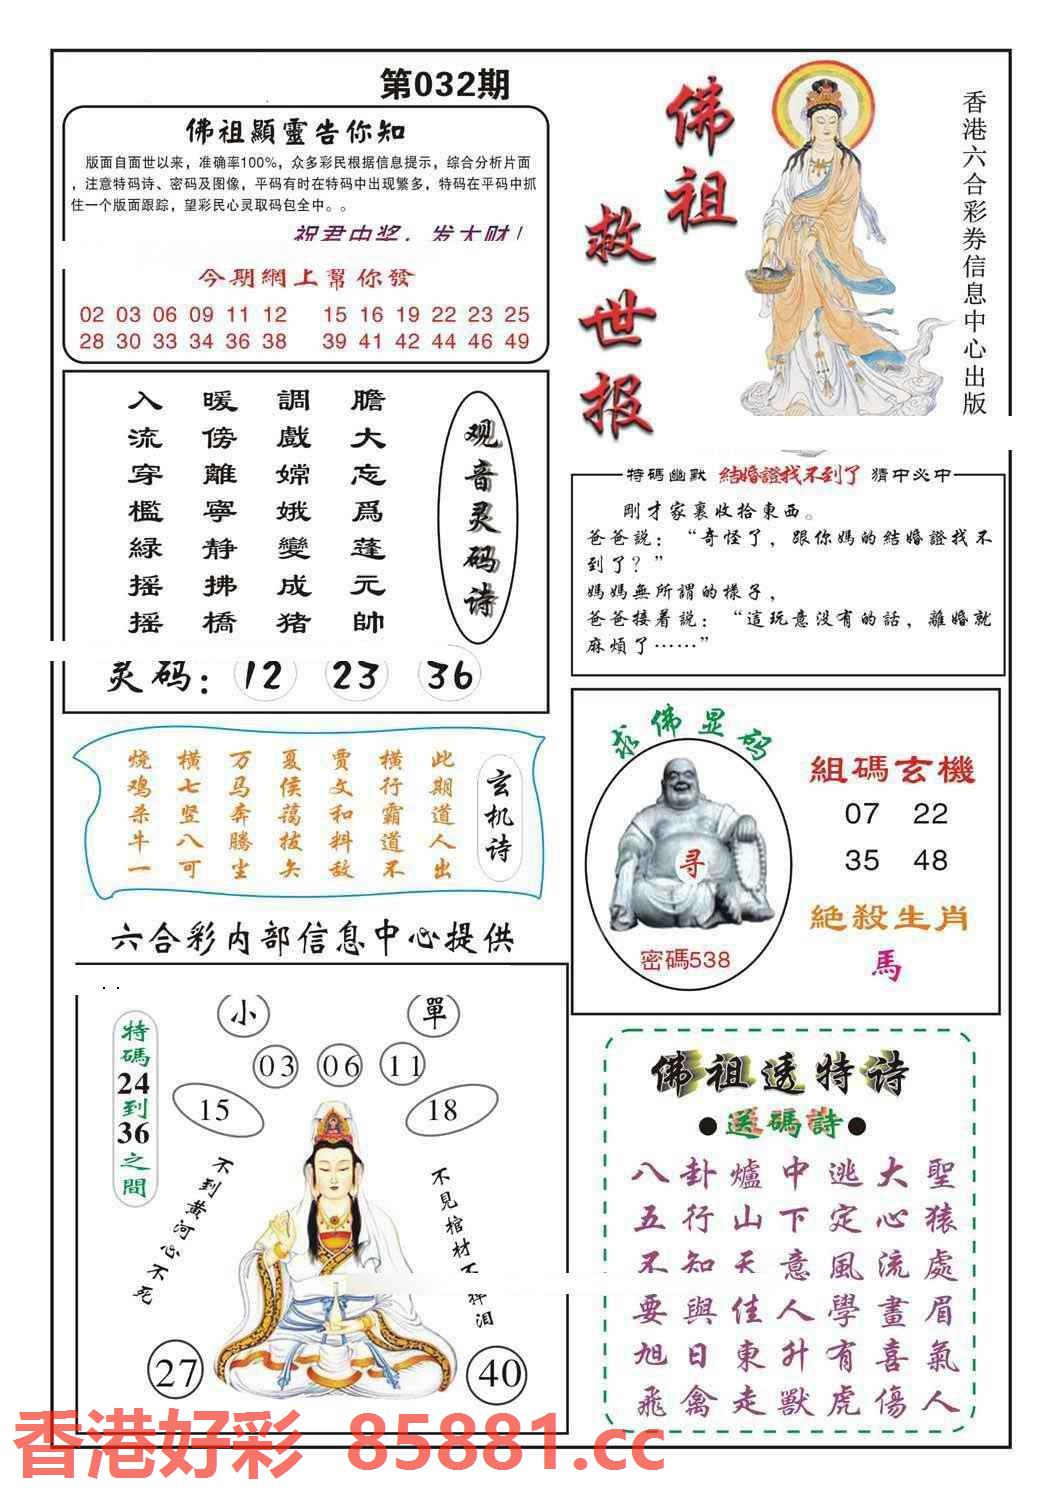 第032期
佛祖顯靈告你知
版面自面世以来，准确率100%，众多彩民根据信息提示，综合分析片面
，注意特码诗、密码及图像，平码有时在特码中出现繁多，特码在平码中抓
住一个版面跟踪，望彩民心灵取码包全中。。
祝君中奖，发大财！
今期網上幫你發
02 03 06 09 11 12 15 16 19 22 23 25
28 30 33 34 36 38 39 41 42 44 46 49
佛祖
救世报
香港六合彩券信息中心出版
观音灵码诗
膽大忘爲蓬元帥
調戲嫦娥變成猪
暖傍離寧静拂橋
入流穿檻緑摇摇
灵码：12 23 36
特碼幽默 結婚證找不到了 猜中必中
剛才家裏收拾東西。
爸爸説：“奇怪了，跟你媽的結婚證找不
到了？”
媽媽無所謂的樣子，
爸爸接着説：“這玩意没有的話，離婚就
麻煩了……”
玄机诗
此期道人出
横行霸道不
贾文和料敌
夏侯蔼拔矢
万马奔腾尘
横七竖八可
烧鸡杀牛一
求佛显码
寻
密碼538
組碼玄機
07 22
35 48
絶殺生肖
馬
六合彩内部信息中心提供
小 單
03 06 11
15 18
特碼24到36之間
不到黄河心不死
不见棺材不掉泪
27 40
佛祖透特诗
●送碼詩●
八卦爐中逃大聖
五行山下定心猿
不知天意風流處
要與佳人學畫眉
旭日東升有喜氣
飛禽走獸虎傷人
香港好彩 85881.cc